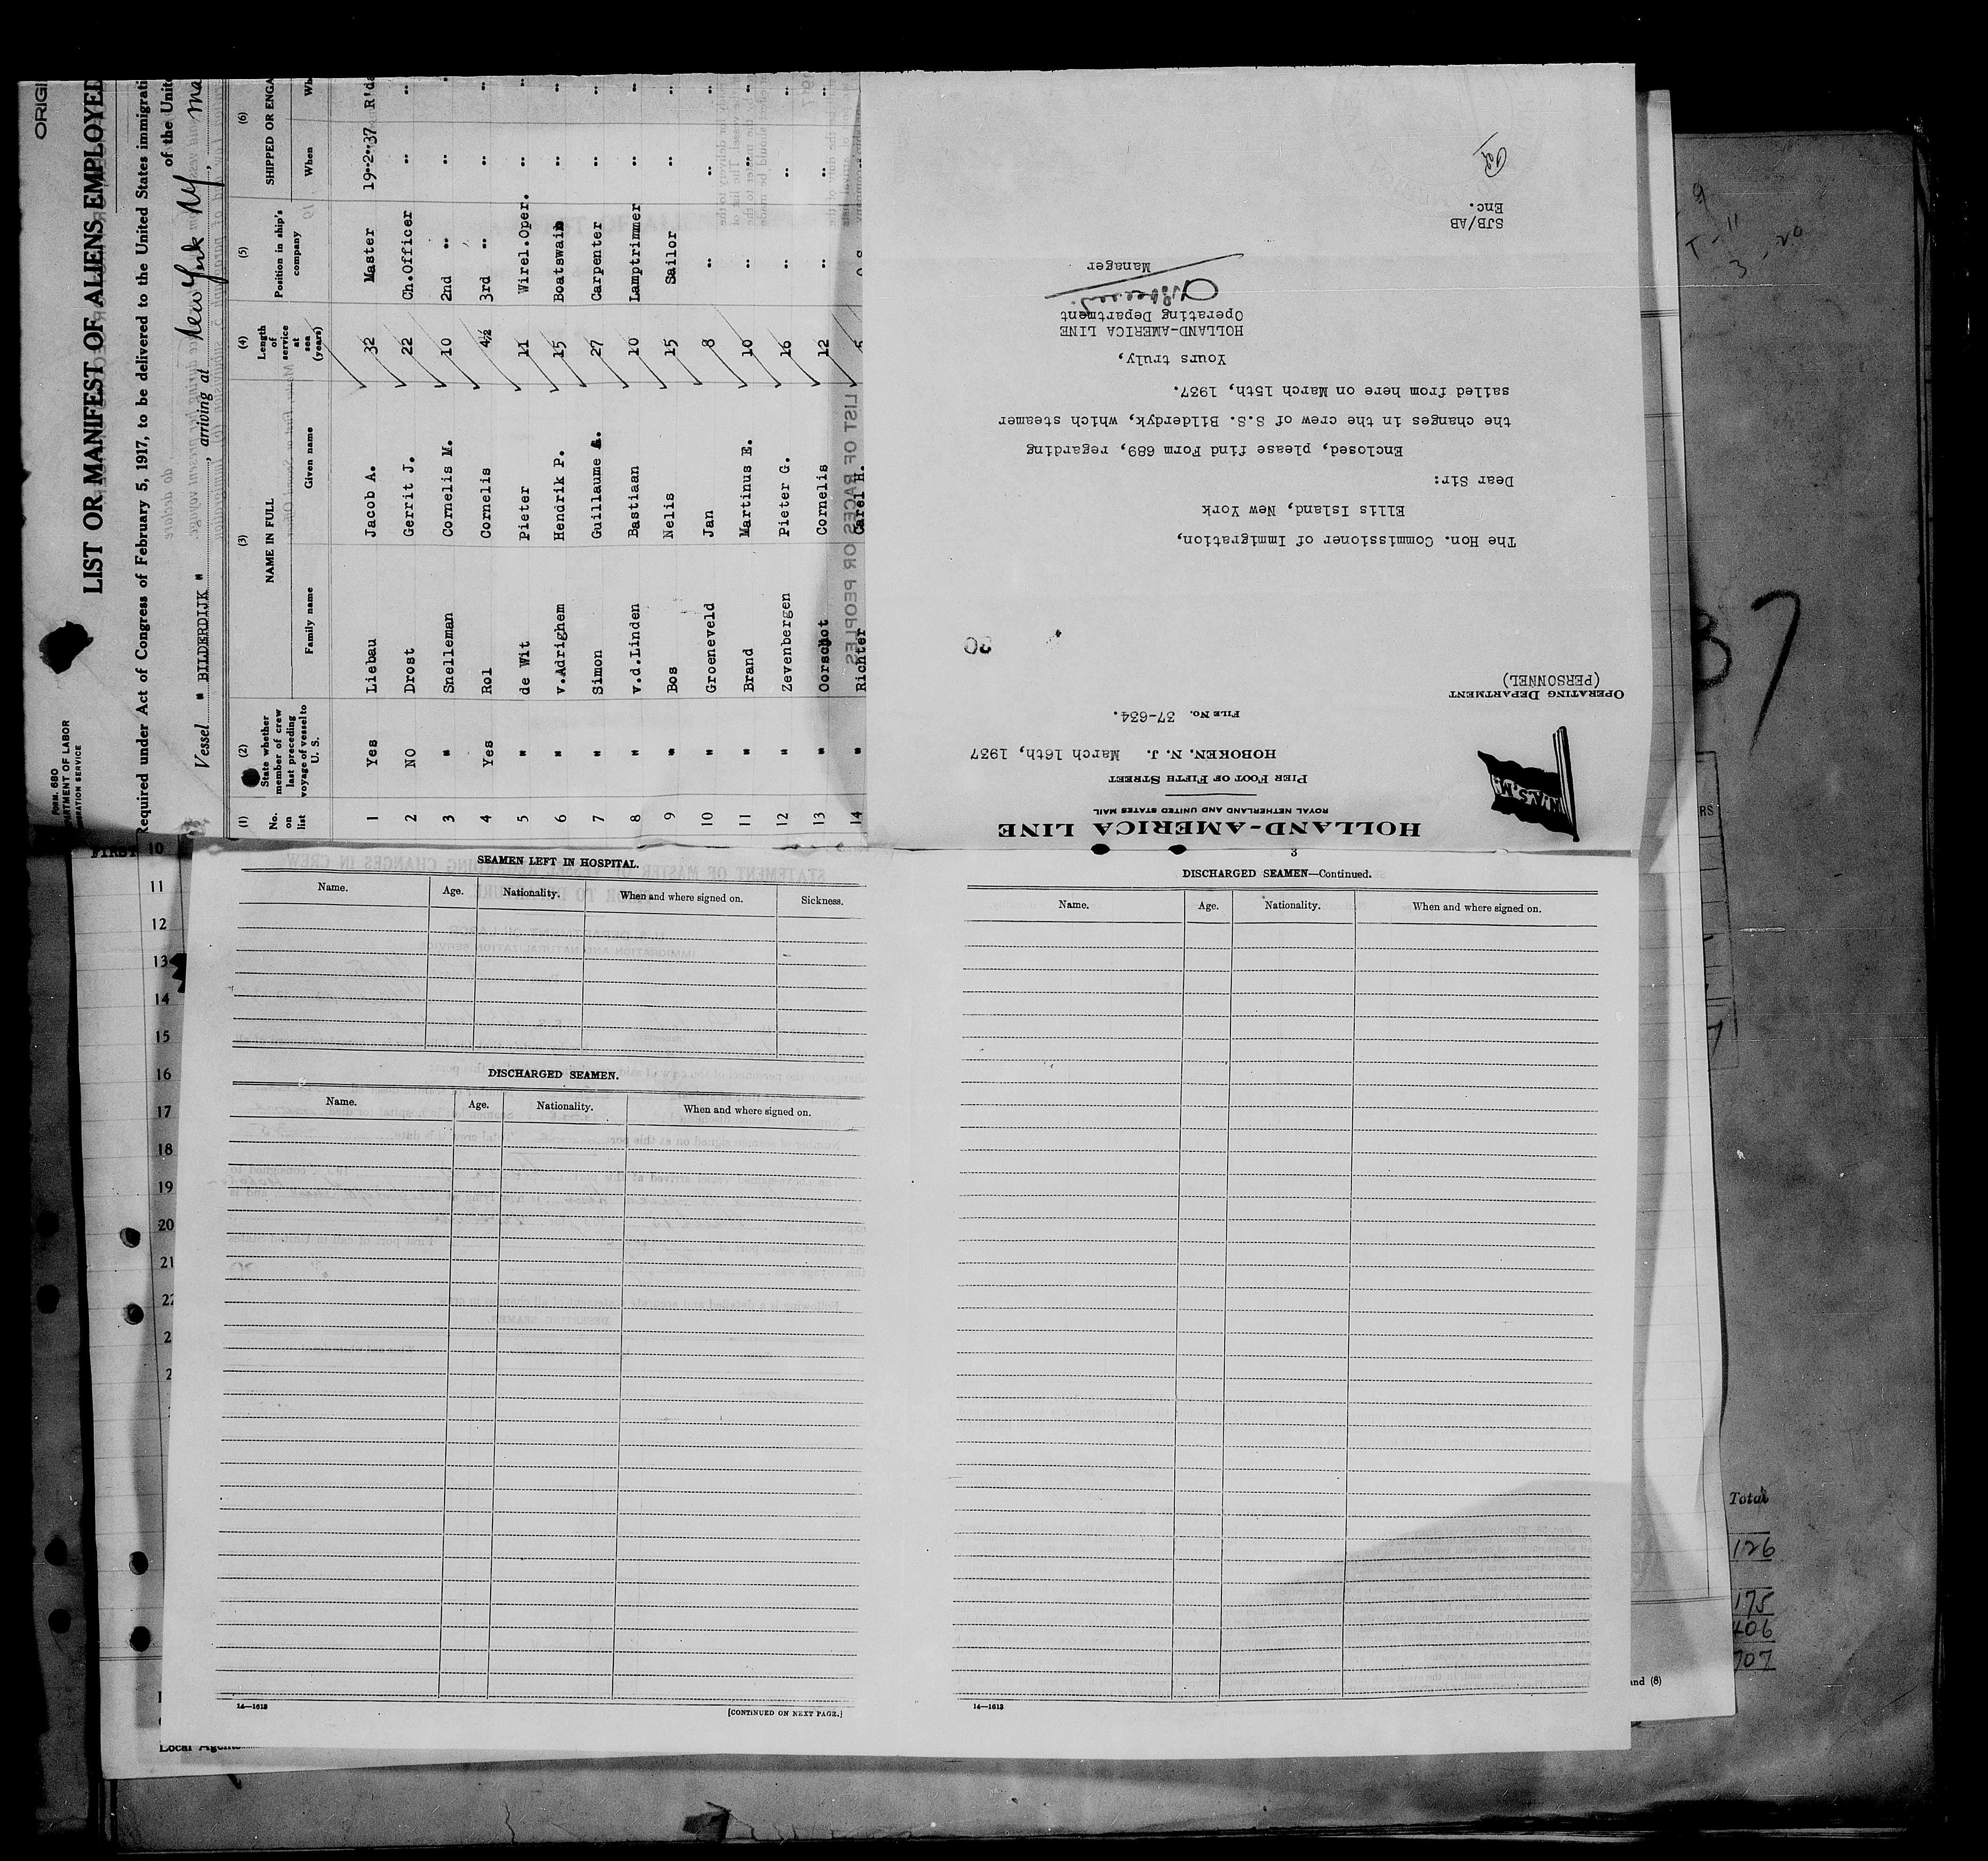 ORIGI
Form 680
PARTMENT OF LABOR
GRATION SERVICE
LIST OR MANIFEST OF ALIENS EMPLOYED
Required under Act of Congress of February 5, 1917, to be delivered to the United States immigrati
of the Unit
Vessel " BILDERDIJK ", arriving at New York NY, ma
(1) No. on list
(2) State whether member of crew last preceding voyage of vessel to U. S.
(3) NAME IN FULL
Family name Given name
(4) Length of service at sea (years)
(5) Position in ship's company
(6) SHIPPED OR ENGA
When Wh
1 Yes Liebau Jacob A. 32 Master 19-2-37 R'da
2 NO Drost Gerrit J. 22 Ch.Officer " "
3 " Snelleman Cornelis M. 10 2nd " " "
4 Yes Rol Cornelis 4½ 3rd " " "
5 " de Wit Pieter 11 Wirel.Oper. " "
6 " v.Adrighem Hendrik P. 15 Boatswain " "
7 " Simon Guillaume A. 27 Carpenter " "
8 " v.d.Linden Bastiaan 10 Lamptrimmer " "
9 " Bos Nelis 15 Sailor " "
10 " Groeneveld Jan 8 " " "
11 " Brand Martinus E. 10 " " "
12 " Zevenbergen Pieter G. 16 " " "
13 " Oorschot Cornelis 12 " " "
14 " Richter Carel H. 5
LIST OF RACES OR PEOPLES
HOLLAND-AMERICA LINE
ROYAL NETHERLAND AND UNITED STATES MAIL
PIER FOOT OF FIFTH STREET
HOBOKEN. N. J. March 16th, 1937
FILE No. 37-634.
N.A.S.M.
OPERATING DEPARTMENT
(PERSONNEL)
30
The Hon. Commissioner of Immigration,
Ellis Island, New York
Dear Sir:
Enclosed, please find Form 689, regarding
the changes in the crew of S.S. Bilderdyk, which steamer
sailed from here on March 15th, 1937.
Yours truly,
HOLLAND-AMERICA LINE
Operating Department
Manager
SJB/AB
Enc.
FIRST 10
11
12
13
14
15
16
17
18
19
20
21
22
2
2
SEAMEN LEFT IN HOSPITAL.
Name. Age. Nationality. When and where signed on. Sickness.
DISCHARGED SEAMEN.
Name. Age. Nationality. When and where signed on.
14—1613
[CONTINUED ON NEXT PAGE.]
3
DISCHARGED SEAMEN—Continued.
Name. Age. Nationality. When and where signed on.
14—1613
Local Agents
37
RS
Total
126
175
406
707
and (8)